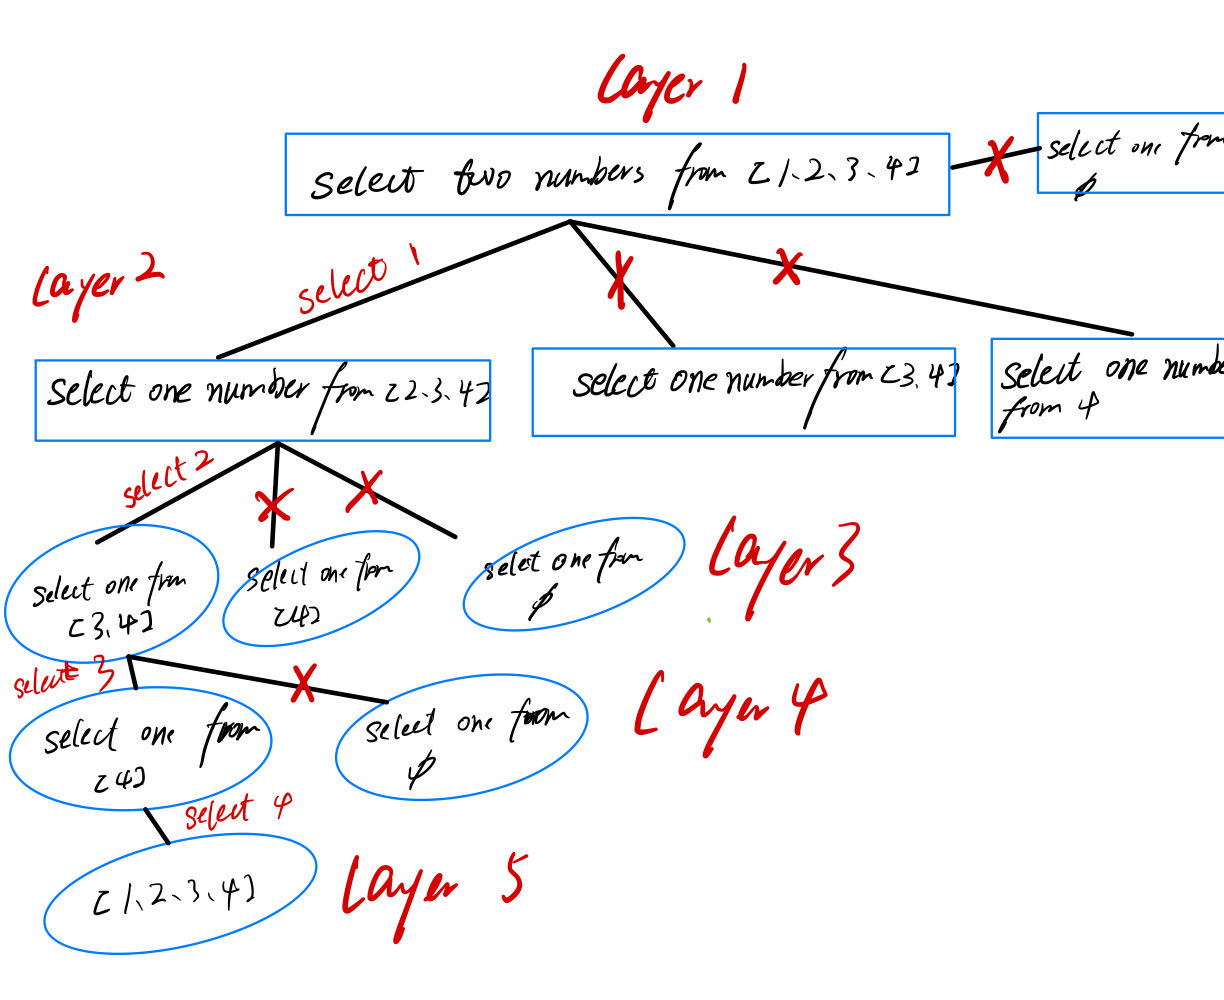 Layer 1
select two numbers from [1、2、3、4]
select one from
φ
Layer 2
select 1
select one number from [2、3、4]
select one number from [3、4]
select one number
from 4
select 2
select one from
[3、4]
select one from
[4]
select one from
φ
Layer 3
select 3
select one from
[4]
select one from
φ
Layer 4
select 4
[1、2、3、4]
Layer 5